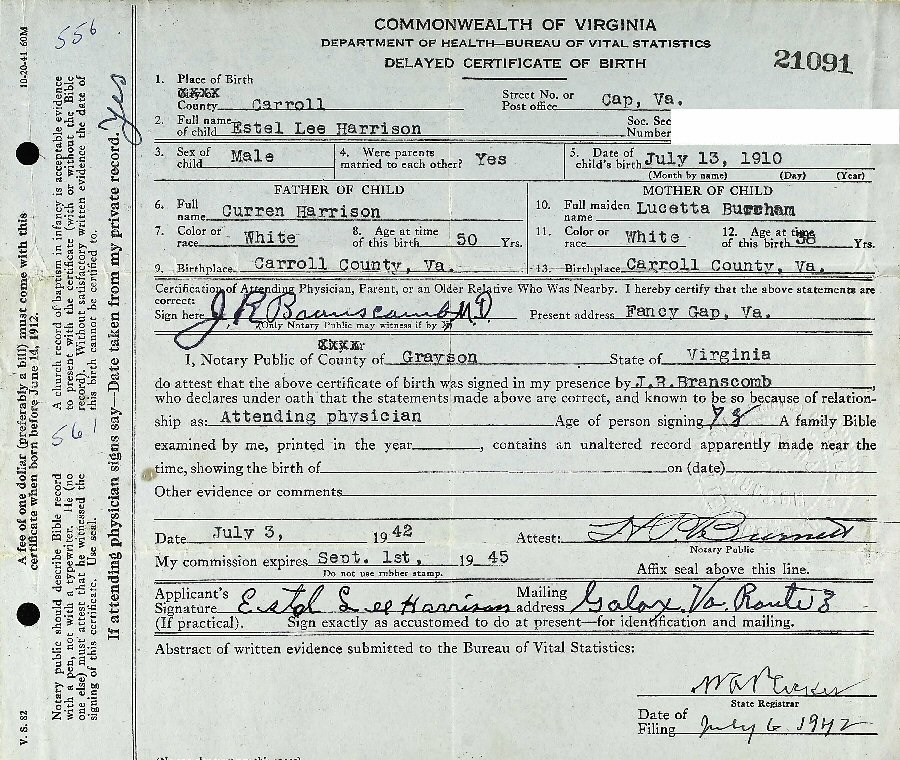 COMMONWEALTH OF VIRGINIA
DEPARTMENT OF HEALTH—BUREAU OF VITAL STATISTICS
DELAYED CERTIFICATE OF BIRTH
21091
1. Place of Birth
County Carroll Street No. or Post office Cap, Va.
2. Full name of child Estel Lee Harrison Soc. Sec Number
3. Sex of child Male 4. Were parents married to each other? Yes 5. Date of child's birth July 13, 1910
(Month by name) (Day) (Year)
FATHER OF CHILD MOTHER OF CHILD
6. Full name Curren Harrison 10. Full maiden name Lucetta Burcham
7. Color or race White 8. Age at time of this birth 50 Yrs. 11. Color or race White 12. Age at time of this birth 38 Yrs.
9. Birthplace Carroll County, Va. 13. Birthplace Carroll County, Va.
Certification of Attending Physician, Parent, or an Older Relative Who Was Nearby. I hereby certify that the above statements are
correct:
Sign here J R Branscomb M D Present address Fancy Gap, Va.
(Only Notary Public may witness if by X)
I, Notary Public of County of Grayson State of Virginia
do attest that the above certificate of birth was signed in my presence by J.R.Branscomb,
who declares under oath that the statements made above are correct, and known to be so because of relation-
ship as: Attending physician Age of person signing 78 A family Bible
examined by me, printed in the year , contains an unaltered record apparently made near the
time, showing the birth of on (date)
Other evidence or comments
Date July 3, 1942 Attest: Burnett
Notary Public
My commission expires Sept. 1st, 1945 Affix seal above this line.
Do not use rubber stamp.
Applicant's Signature Estel Lee Harrison Mailing address Galax, Va. Route 3
(If practical). Sign exactly as accustomed to do at present—for identification and mailing.
Abstract of written evidence submitted to the Bureau of Vital Statistics:
State Registrar
Date of Filing July 6 1942
V. S. 82
A fee of one dollar (preferably a bill) must come with this
certificate when born before June 14, 1912.
10-20-41 60M
Notary public should describe Bible record
with a pen, not with a typewriter. He (no
one else) must attest that he witnessed the
signing of this certificate. Use seal.
561
A church record of baptism in infancy is acceptable evidence
to present with the certificate (with or without the Bible
record). Without satisfactory written evidence the date of
this birth cannot be certified to.
556
If attending physician signs say—Date taken from my private record. Yes